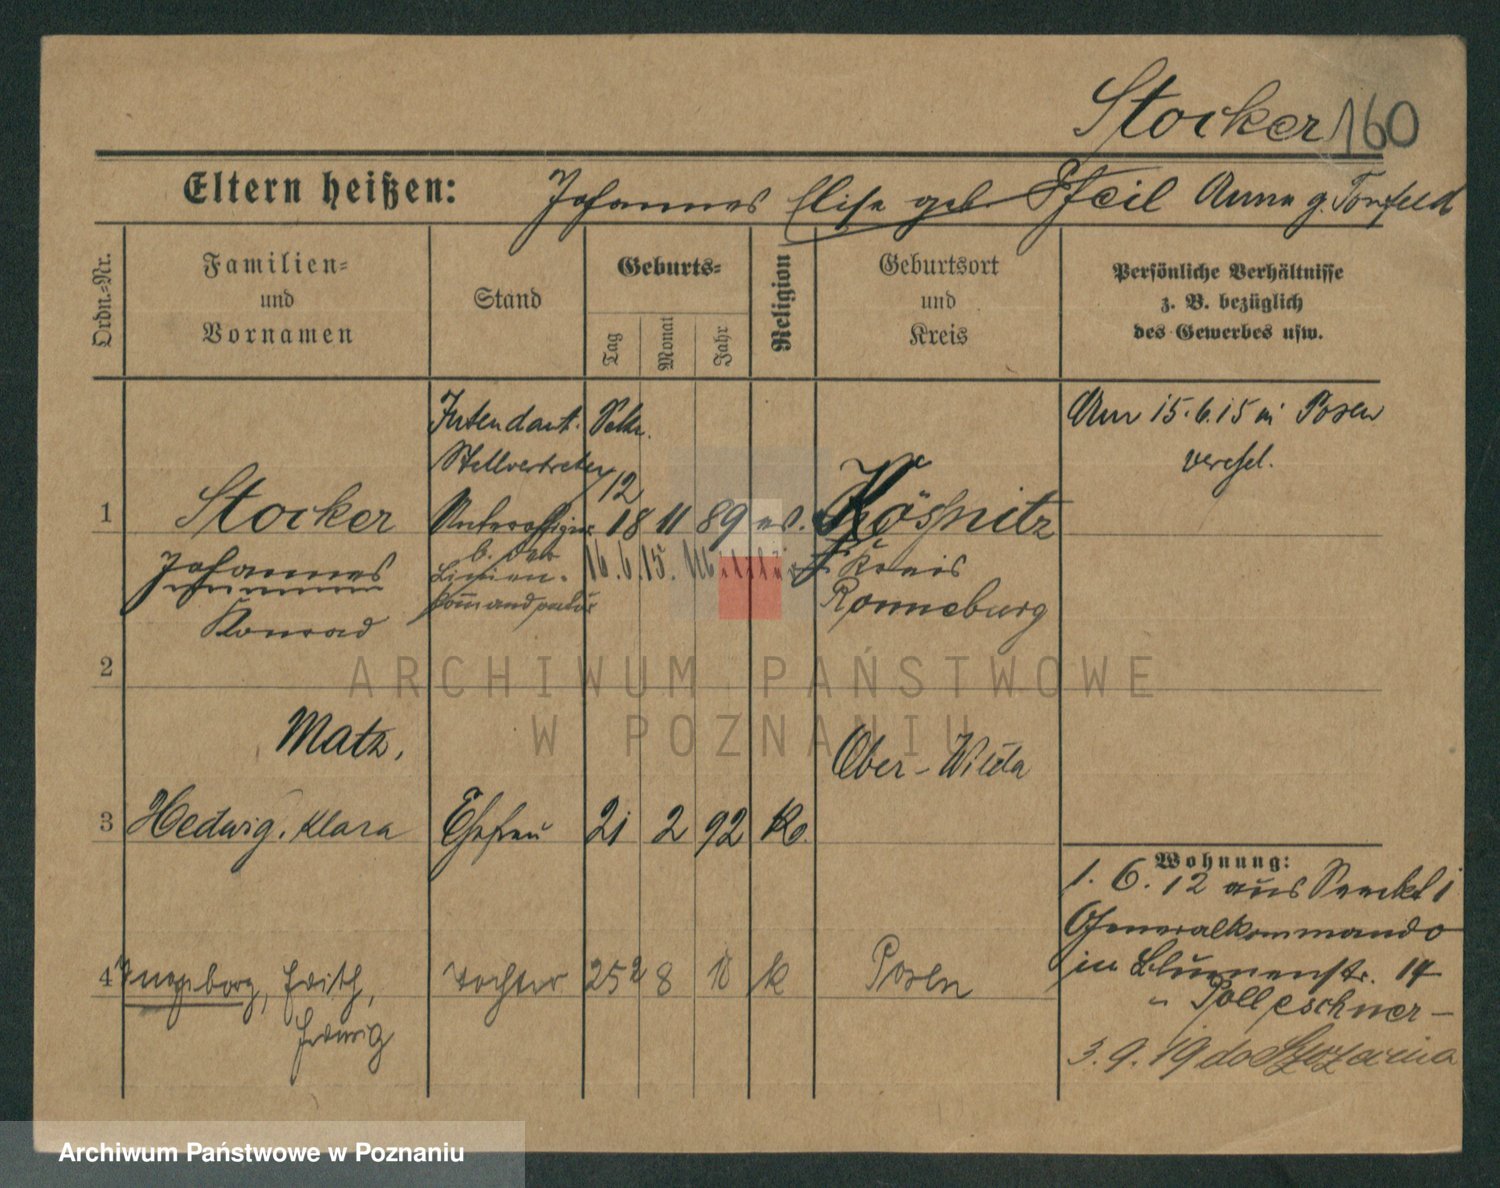 Stocker 160
Eltern heißen: Johannes Elise geb. Pfeil Anna g. Tonfeld
Ordn.-Nr.
Familien-
und
Vornamen
Stand
Geburts-
Tag
Monat
Jahr
Religion
Geburtsort
und
Kreis
Persönliche Verhältnisse
z. B. bezüglich
des Gewerbes usw.
Intendant. Sekr.
Stellvertreter
Am 15.6.15 in Posen
verehel.
12
1 Stocker Unteroffizier 18 11 89 ev. Kösnitz
Johannes b. der 16.6.15. Militär Kreis
Linien-
Konrad Kommandantur Ronneburg
2
Matz, Ober-Wilda
3 Hedwig, Klara Ehefrau 21 2 92 K.
4 Ingeborg, Edith, Tochter 25 8 18 k Posen
Hedwig
Wohnung:
1. 6. 12 aus
Generalkommando
in Blumenstr. 14
"
3. 9. 19 do
ARCHIWUM PAŃSTWOWE
W POZNANIU
Archiwum Państwowe w Poznaniu